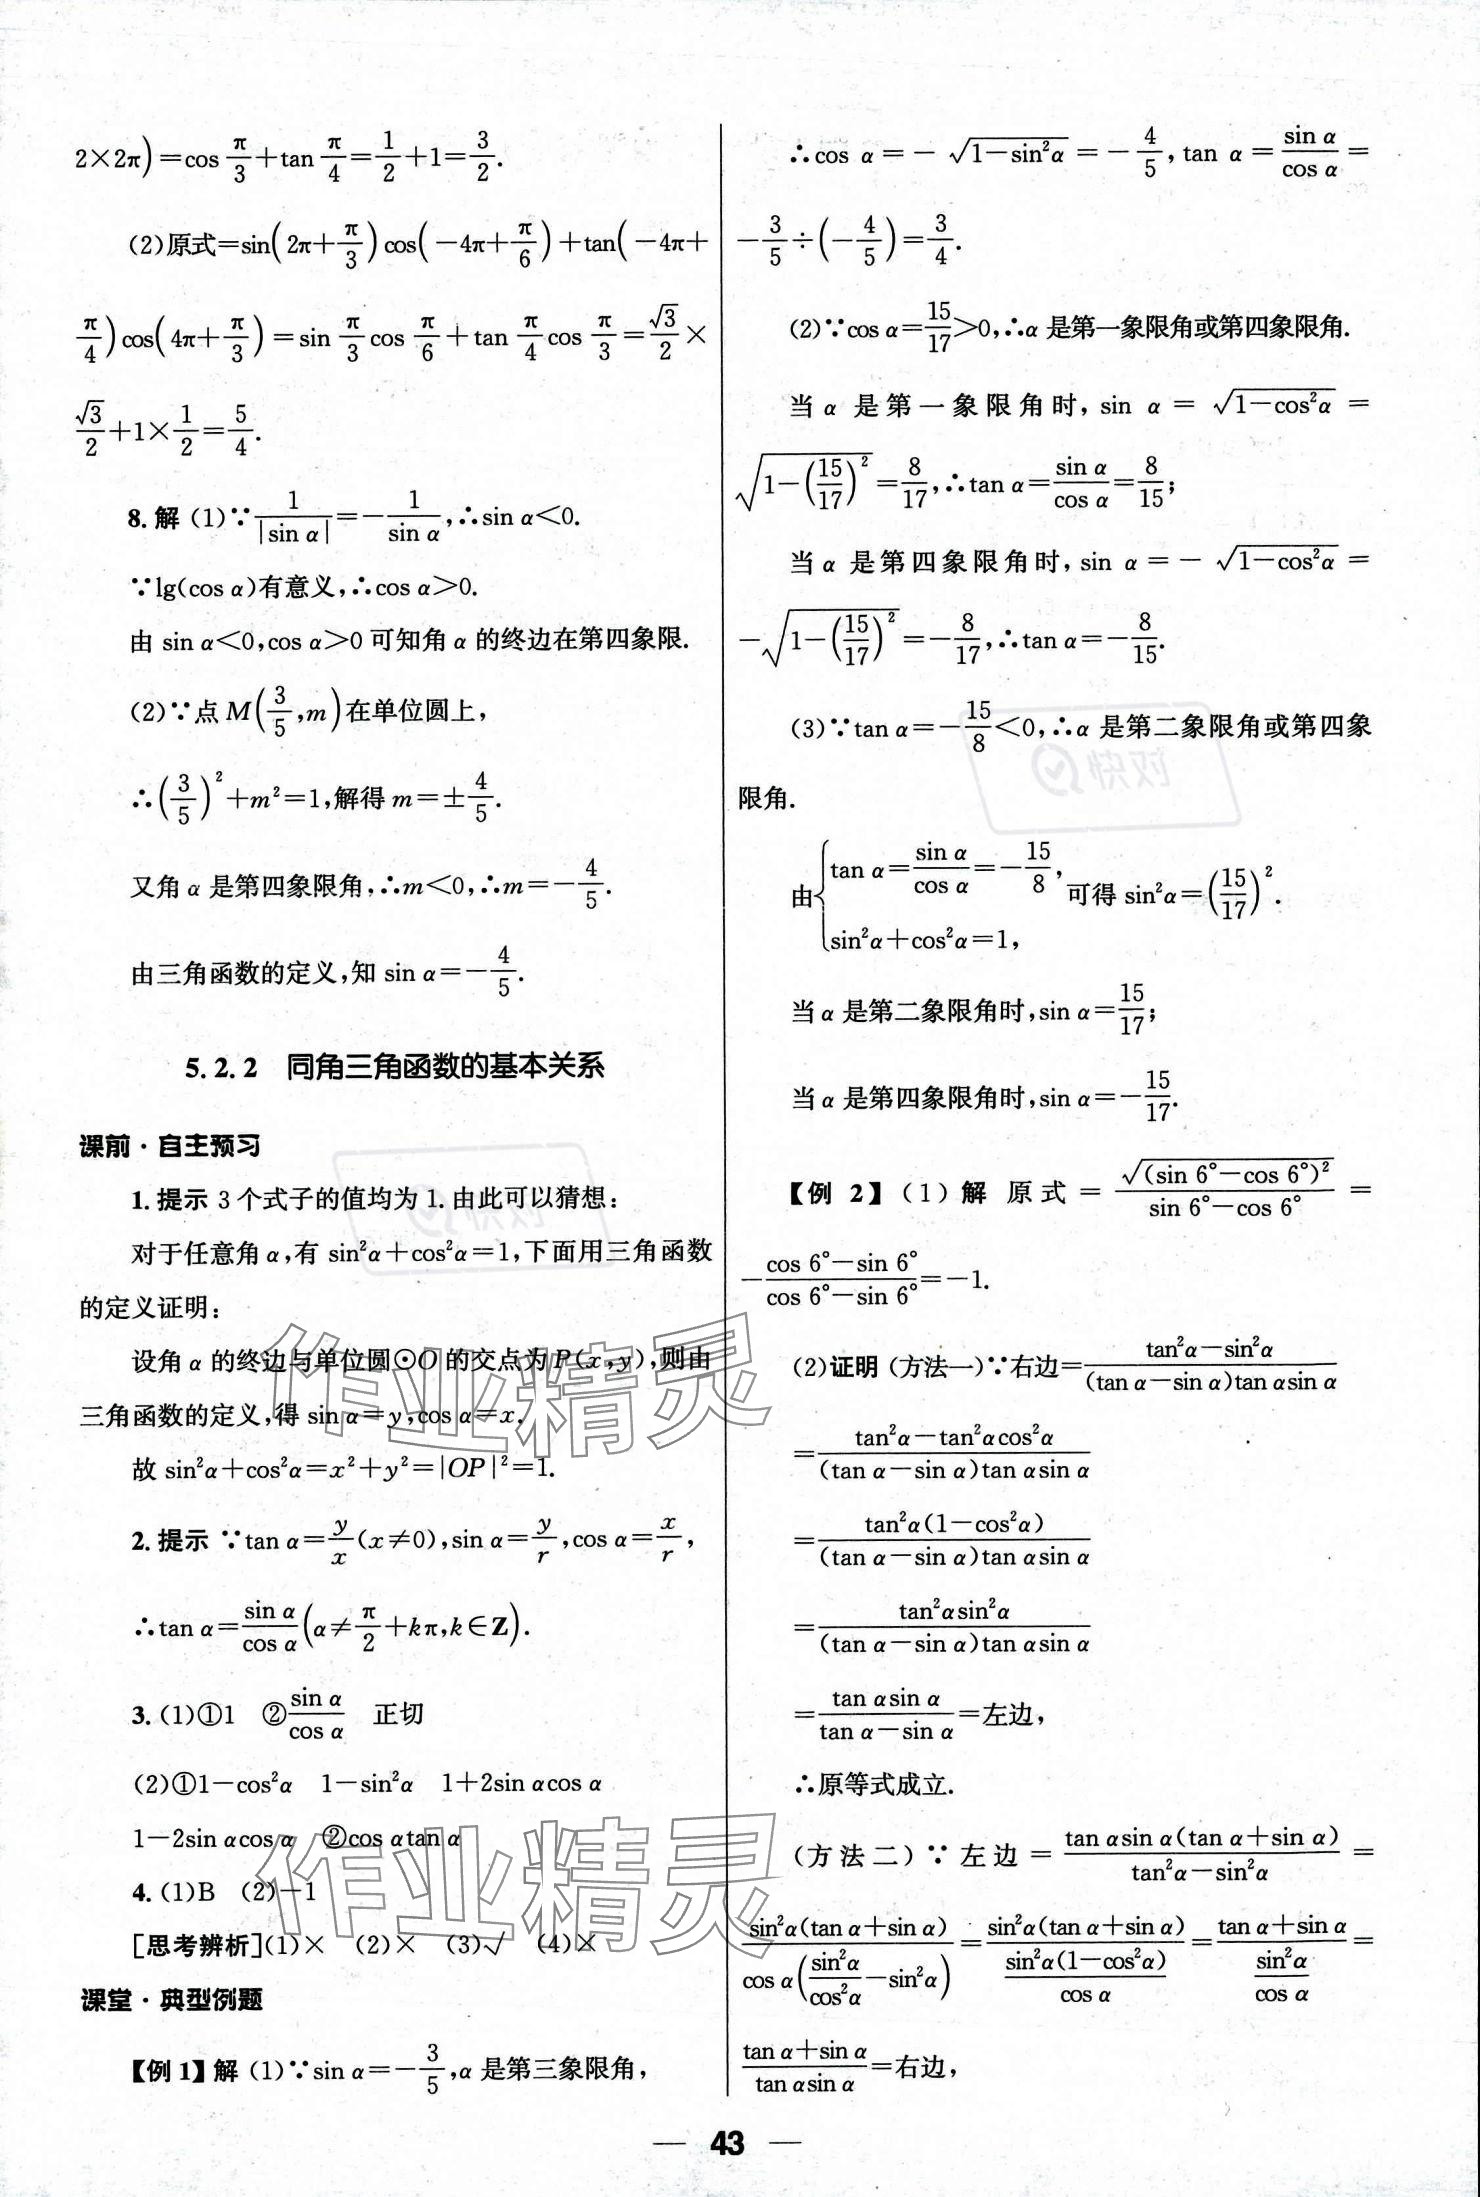 2×2π)=cos π/3+tan π/4=1/2+1=3/2.
(2)原式=sin(2π+π/3)cos(-4π+π/6)+tan(-4π+
π/4)cos(4π+π/3)=sin π/3 cos π/6+tan π/4 cos π/3=√3/2×
√3/2+1×1/2=5/4.
8.解 (1)∵1/|sin α|=-1/sin α,∴sin α<0.
∵lg(cos α)有意义,∴cos α>0.
由 sin α<0,cos α>0 可知角 α 的终边在第四象限.
(2)∵点 M(3/5,m)在单位圆上,
∴(3/5)²+m²=1,解得 m=±4/5.
又角 α 是第四象限角,∴m<0,∴m=-4/5.
由三角函数的定义,知 sin α=-4/5.
5.2.2 同角三角函数的基本关系
课前·自主预习
1.提示 3 个式子的值均为 1.由此可以猜想:
对于任意角 α,有 sin²α+cos²α=1,下面用三角函数
的定义证明:
设角 α 的终边与单位圆⊙O 的交点为 P(x,y),则由
三角函数的定义,得 sin α=y,cos α=x.
故 sin²α+cos²α=x²+y²=|OP|²=1.
2.提示 ∵tan α=y/x(x≠0),sin α=y/r,cos α=x/r,
∴tan α=sin α/cos α(α≠π/2+kπ,k∈Z).
3.(1)①1 ②sin α/cos α 正切
(2)①1-cos²α 1-sin²α 1+2sin αcos α
1-2sin αcos α ②cos αtan α
4.(1)B (2)-1
[思考辨析](1)× (2)× (3)√ (4)×
课堂·典型例题
【例 1】解 (1)∵sin α=-3/5,α 是第三象限角,
∴cos α=-√(1-sin²α)=-4/5,tan α=sin α/cos α=
-3/5÷(-4/5)=3/4.
(2)∵cos α=15/17>0,∴α 是第一象限角或第四象限角.
当 α 是第一象限角时,sin α=√(1-cos²α)=
√(1-(15/17)²)=8/17,∴tan α=sin α/cos α=8/15;
当 α 是第四象限角时,sin α=-√(1-cos²α)=
-√(1-(15/17)²)=-8/17,∴tan α=-8/15.
(3)∵tan α=-15/8<0,∴α 是第二象限角或第四象
限角.
由{tan α=sin α/cos α=-15/8, sin²α+cos²α=1, 可得 sin²α=(15/17)².
当 α 是第二象限角时,sin α=15/17;
当 α 是第四象限角时,sin α=-15/17.
【例 2】(1)解 原式=√((sin 6°-cos 6°)²)/(sin 6°-cos 6°)=
-(cos 6°-sin 6°)/(cos 6°-sin 6°)=-1.
(2)证明 (方法一)∵右边=(tan²α-sin²α)/((tan α-sin α)tan αsin α)
=(tan²α-tan²αcos²α)/((tan α-sin α)tan αsin α)
=(tan²α(1-cos²α))/((tan α-sin α)tan αsin α)
=(tan²αsin²α)/((tan α-sin α)tan αsin α)
=(tan αsin α)/(tan α-sin α)=左边,
∴原等式成立.
(方法二)∵左边=(tan αsin α(tan α+sin α))/(tan²α-sin²α)=
(sin²α(tan α+sin α))/(cos α(sin²α/cos²α-sin²α))=(sin²α(tan α+sin α))/(sin²α(1-cos²α)/cos α)=(tan α+sin α)/(sin²α/cos α)=
(tan α+sin α)/(tan αsin α)=右边,
— 43 —
作业精灵
作业精灵
快对
快对